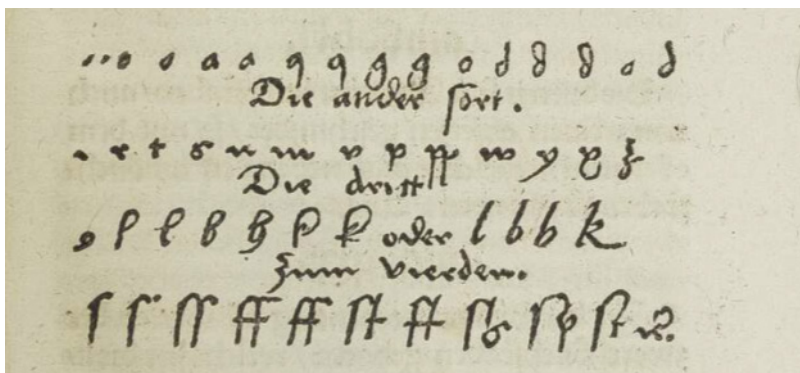 o o a a q q g g o d d d o d
Die ander sort.
r t s n m v p pp w y x z
Die dritt
l l b h k k oder l b b k
Zum vierden.
ſ ſ ſſ ff ff ſt ft ſs ſp ſt ꝛc.